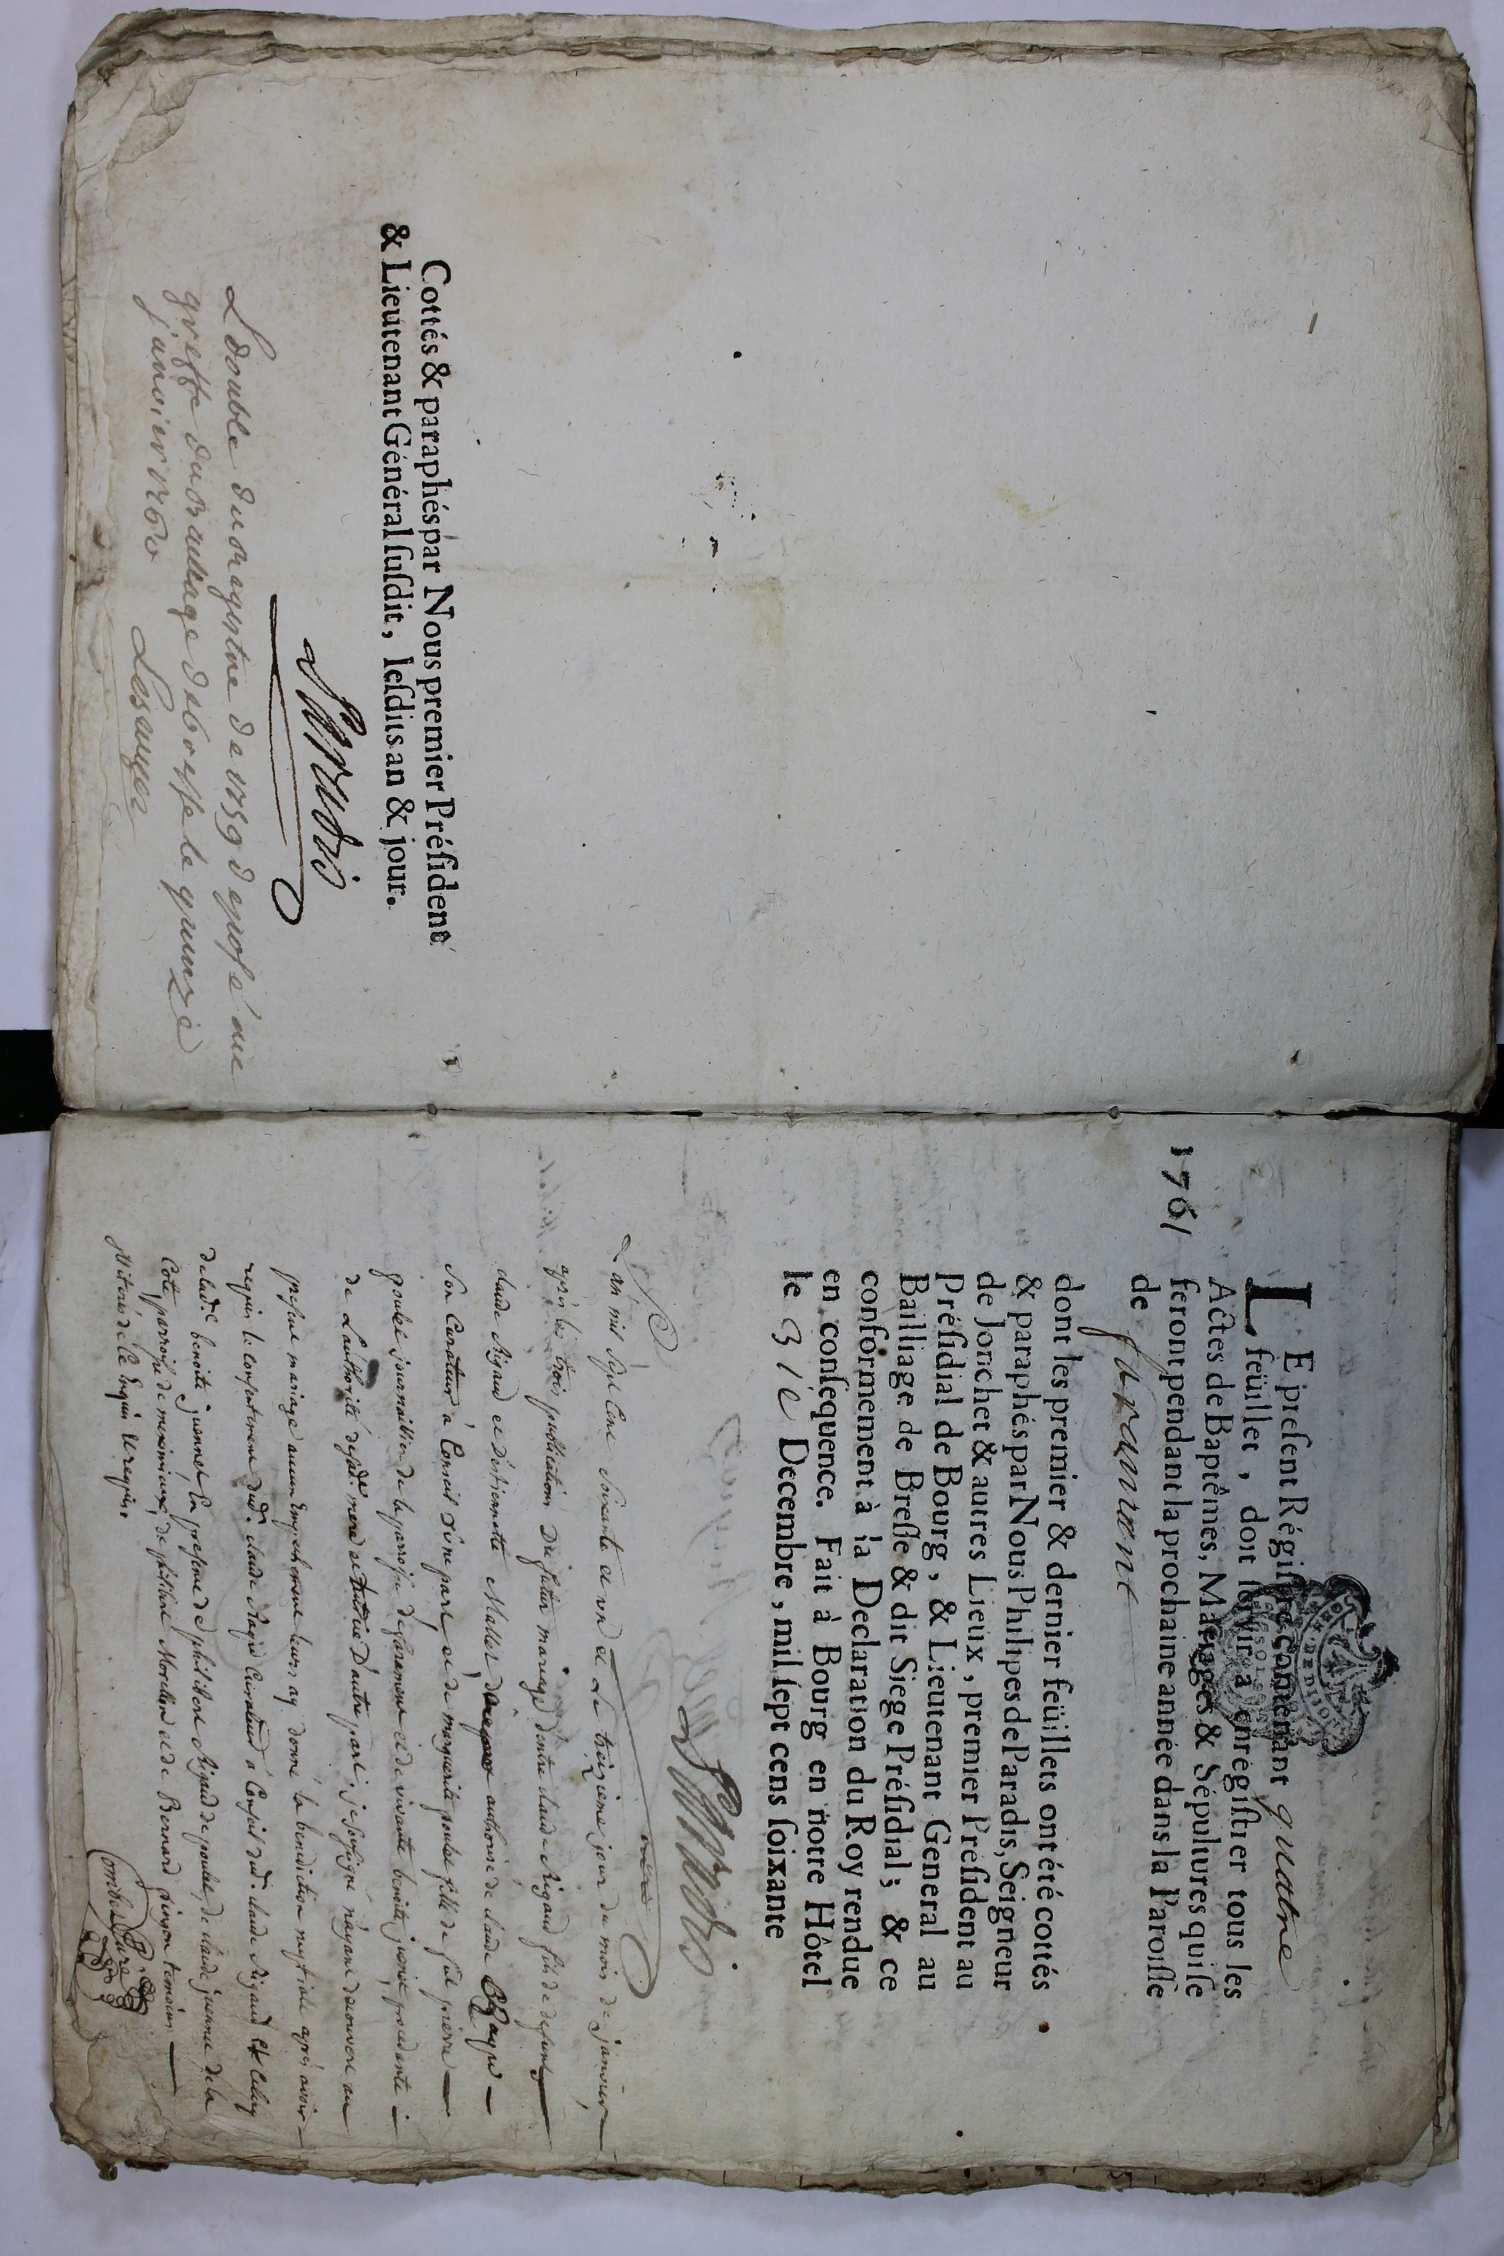 Cottés & paraphés par Nous premier Présidenť
& Lieutenant Général susdit, lesdits an & jour.
Paradis
L double du registre de 1759 deposé aue
greffe du Bailliage de bresse le quinze
janvier 1760 Lesauger
1761
LE present Régistre contenant quatre
feüillet, doit servir à enrégistrer tous les
Actes de Baptêmes, Mariages & Sépultures qui se
feront pendant la prochaine année dans la Paroisse
de faramant
dont les premier & dernier feüillets ont été cottés
& paraphés par Nous Philipes de Paradis, Seigneur
de Jonchet & autres Lieux, premier Président au
Présidial de Bourg, & Lieutenant General au
Bailliage de Bresse & dit Siege Présidial; & ce
conformement à la Declaration du Roy rendue
en conséquence. Fait à Bourg en notre Hôtel
le 31e Decembre, mil sept cens soixante
Paradis
L'an mil sept cent soixante et un et Le treizieme jour du mois de janvier
après les trois publications du futur mariage d'entre claude Rigaud fils de defunt
claude Rigaud et d'estiennette Mallet, authorisé de claude
son Curateur à Conseil d'une part et de marguerite goulet fille de feu pierre
goulet journaillier de la paroisse de faramant et de vivante benoite procedante
de L'authorité desad. mere d'autre part; je soussigné n'ayant decouvert au
present mariage aucun Empechement leurs ay donné la benediction nuptiale après avoir
requis le consentement dud. claude Curateur à Conseil dud. claude Rigaud et celuy
de lad. benoite juennet, En presence de philibert Rigaud de goulet, de claude juennet de la
Cote parroisse de mesimieux, de philibert Morellon et de Bernard temoins
illiterés de ce Enquis et requis.
Comba Curé